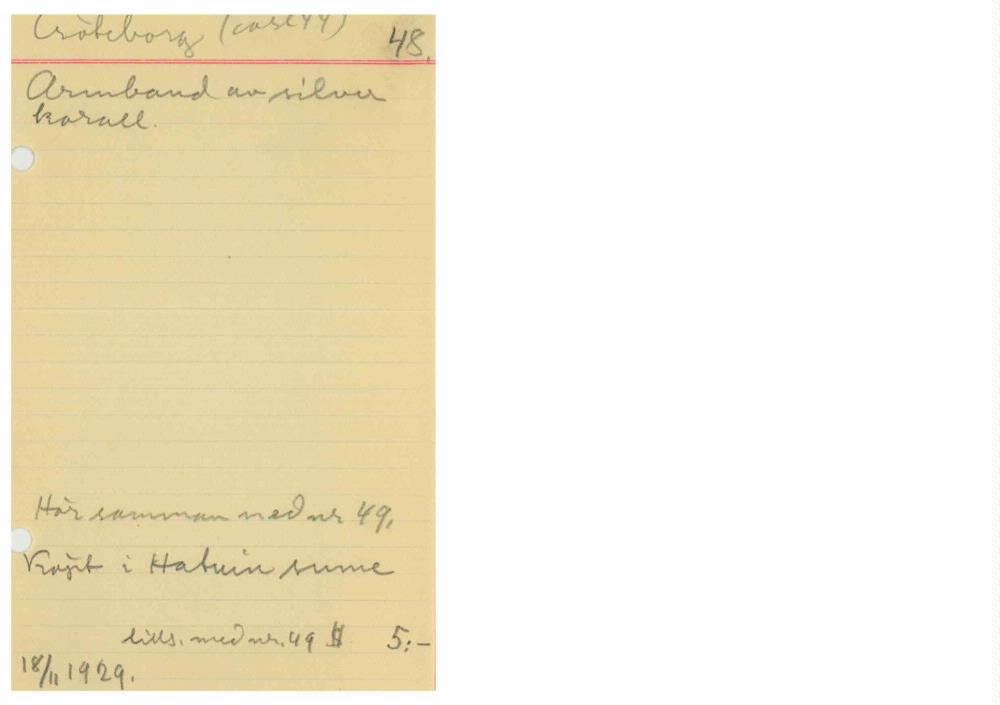 Göteborg
48.
Armband av silver
korall.
Hör samman med nr 49.
Köpt i Hatuin sume
tills. med nr. 49 $ 5:-
18/11 1929.